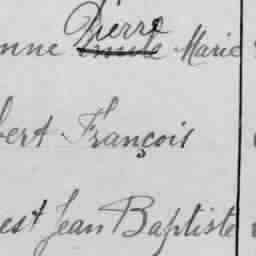 Pierre
nne Emile Marie
bert François
est Jean Baptiste